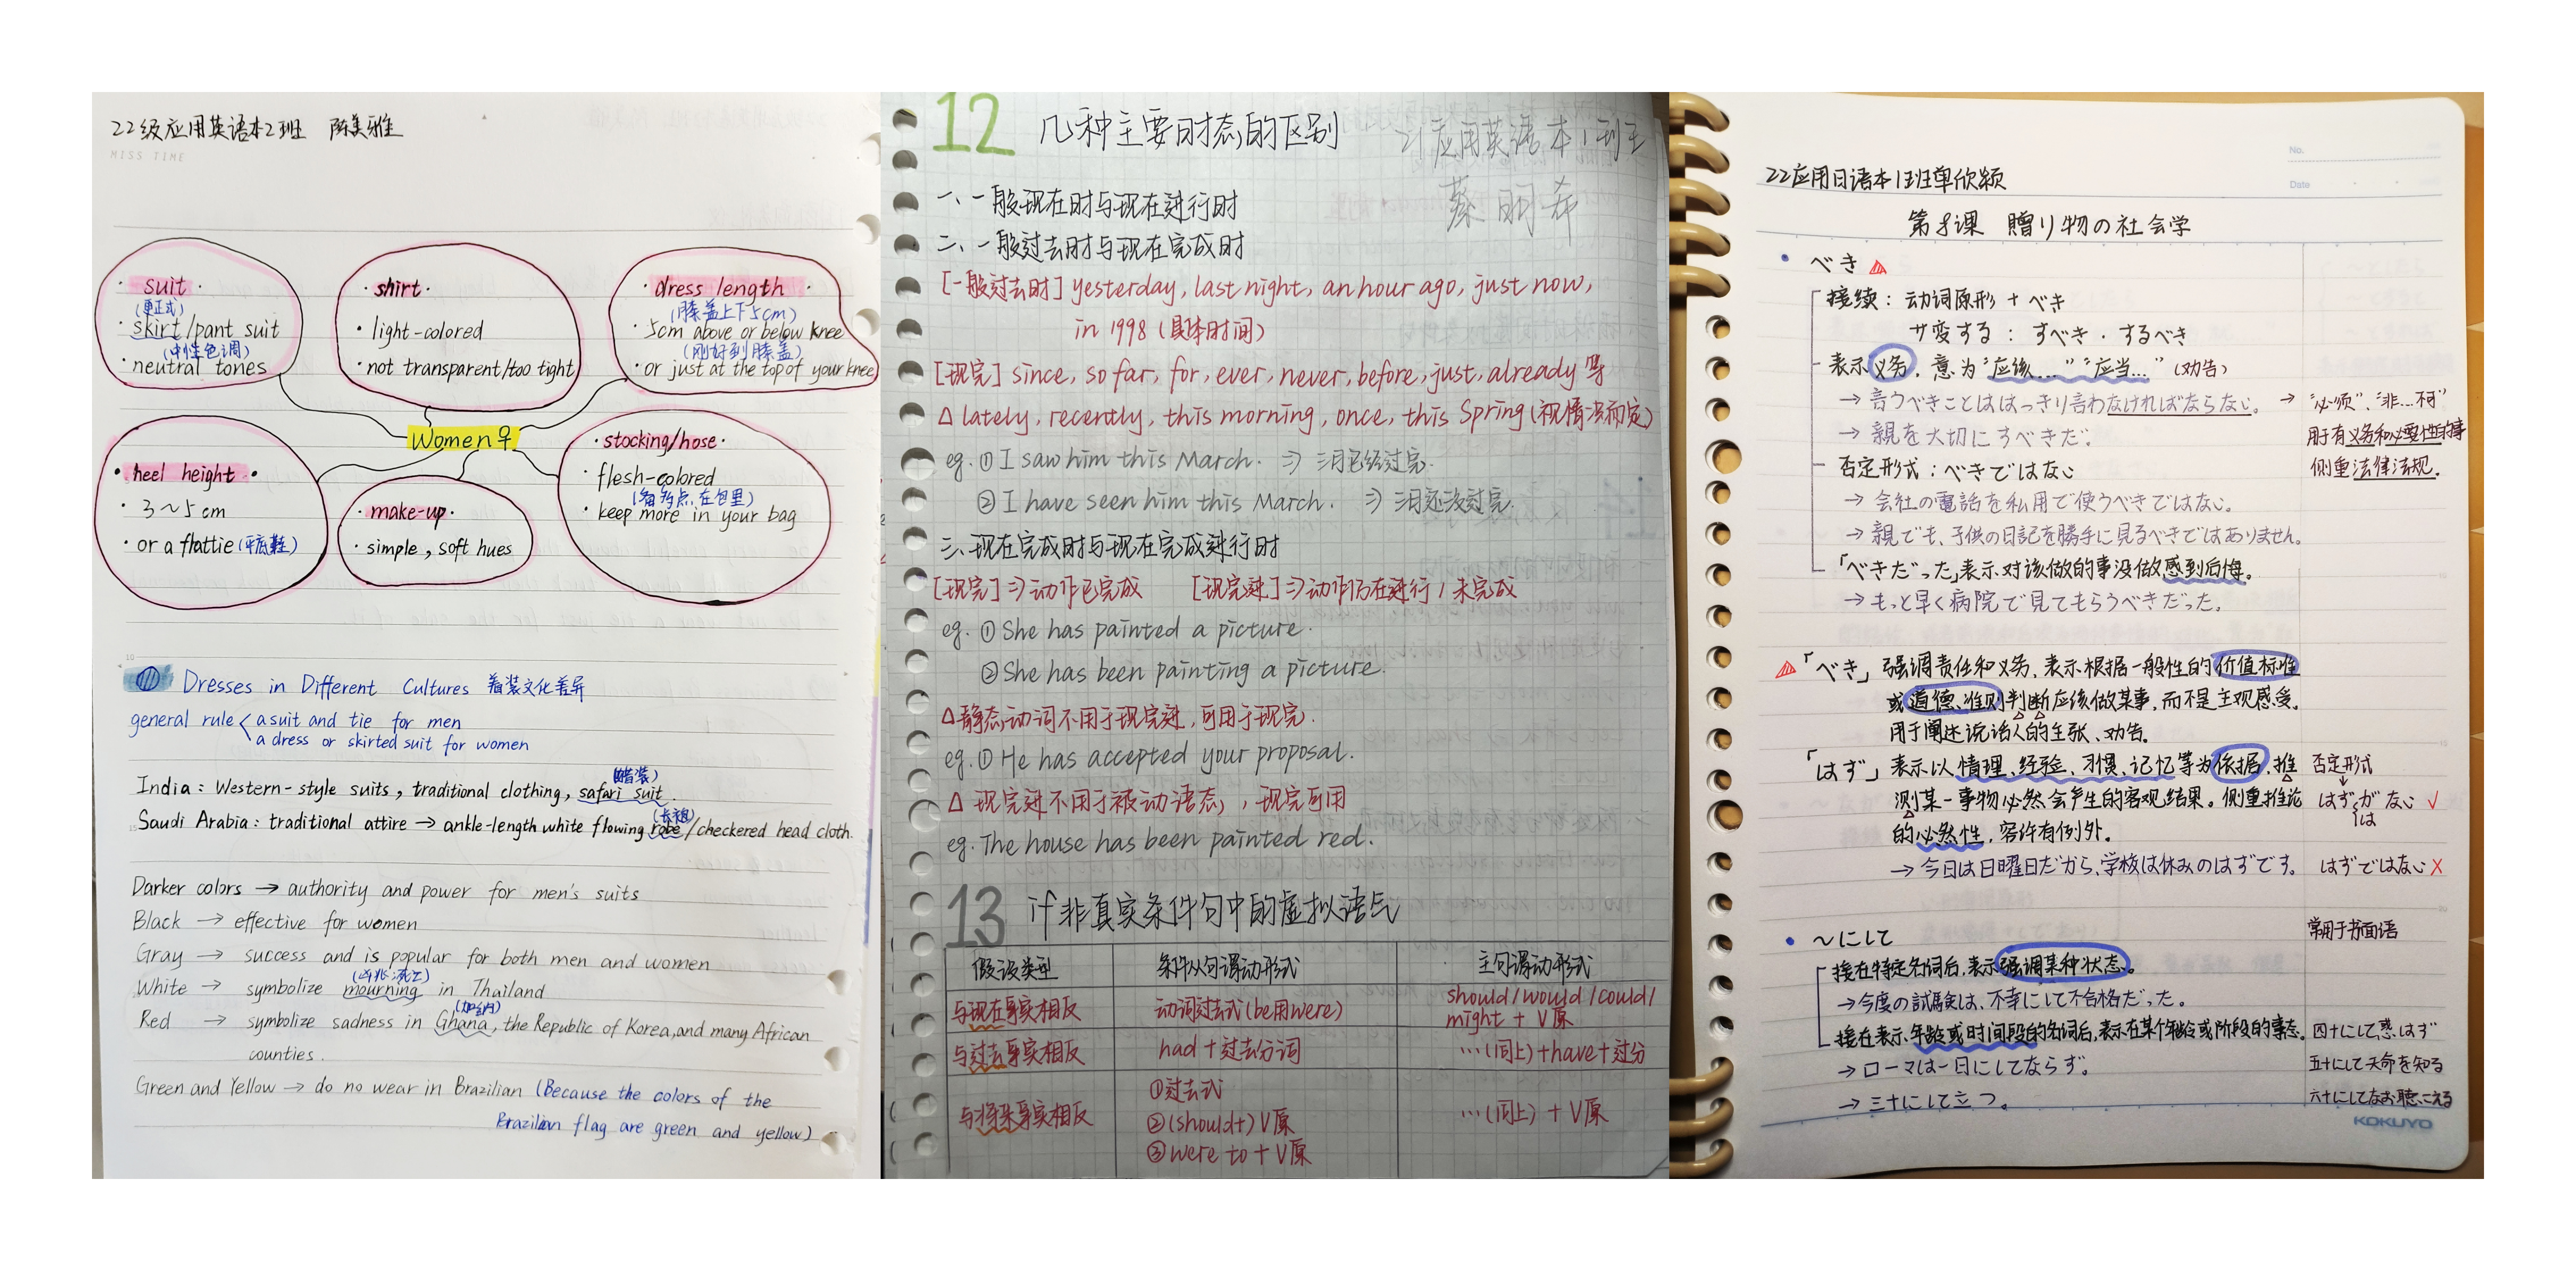 22级应用英语本2班 陈美雅
MISS TIME
· suit ·
(更正式)
· skirt/pant suit
(中性色调)
· neutral tones
· shirt ·
· light-colored
· not transparent/too tight
· dress length ·
(膝盖上下5cm)
· 5cm above or below knee
(刚好到膝盖)
· or just at the top of your knee
Women♀
· heel height ·
· 3~5cm
· or a flattie (平底鞋)
· make-up ·
· simple, soft hues
· stocking/hose ·
· flesh-colored
(备多点在包里)
· keep more in your bag
Dresses in Different Cultures 着装文化差异
general rule < a suit and tie for men
a dress or skirted suit for women
India: Western-style suits, traditional clothing, safari suit.
(长袍)
Saudi Arabia: traditional attire → ankle-length white flowing robe/checkered head cloth.
Darker colors → authority and power for men's suits
Black → effective for women
Gray → success and is popular for both men and women
White → symbolize mourning in Thailand
(加纳)
Red → symbolize sadness in Ghana, the Republic of Korea, and many African
counties.
Green and Yellow → do no wear in Brazilian (Because the colors of the
Brazilian flag are green and yellow)
12 几种主要时态的区别
21应用英语本1班
蔡明希
一、一般现在时与现在进行时
二、一般过去时与现在完成时
[一般过去时] yesterday, last night, an hour ago, just now,
in 1998 (具体时间)
[现完] since, so far, for, ever, never, before, just, already 等
△ lately, recently, this morning, once, this Spring (视情况而定)
eg. ① I saw him this March. ⇒ 三月已经过完.
② I have seen him this March. ⇒ 三月还没过完.
三、现在完成时与现在完成进行时
[现完]⇒动作已完成 [现完进]⇒动作仍在进行/未完成
eg. ① She has painted a picture.
② She has been painting a picture.
△静态动词不用于现完进, 可用于现完.
eg. ① He has accepted your proposal.
△ 现完进不用于被动语态, 现完可用
eg. The house has been painted red.
13 if非真实条件句中的虚拟语气
假设类型 条件从句谓动形式 主句谓动形式
与现在事实相反 动词过去式(be用were) should/would/could/
might + V原
与过去事实相反 had+过去分词 …(同上)+have+过分
与将来事实相反 ①过去式
②(should+)V原 …(同上) + V原
③were to + V原
No.
Date
22应用日语本1班单欣颖
第8课 贈り物の社会学
• べき
接续: 动词原形 + べき
サ変する: すべき・するべき
表示义务, 意为"应该…""应当…" (劝告)
→ 言うべきことははっきり言わなければならない。 → "必须"、"非…不可"
用于有义务和必要性的事
侧重法律法规.
→ 親を大切にすべきだ.
否定形式: べきではない
→ 会社の電話を私用で使うべきではない。
→ 親でも、子供の日記を勝手に見るべきではありません。
「べきだった」表示对该做的事没做感到后悔。
→ もっと早く病院で見てもらうべきだった。
「べき」强调责任和义务, 表示根据一般性的价值标准
或道德、准则判断应该做某事, 而不是主观感受.
用于阐述说话人的主张、劝告.
「はず」表示以情理、经验、习惯、记忆等为依据, 推
测某一事物必然会产生的客观结果。侧重推论
的必然性, 容许有例外。
→ 今日は日曜日だから、学校は休みのはずです。
否定形式
はず{が ない ✓
は
はずではない ✗
• ~にして
常用于书面语
接在特定名词后, 表示强调某种状态。
→ 今度の試験は、不幸にして不合格だった。
接在表示年龄或时间段的名词后, 表示在某个年龄或阶段的事态.
→ ローマは一日にしてならず。
→ 三十にして立つ。
四十にして惑はず
五十にして天命を知る
KOKUYO